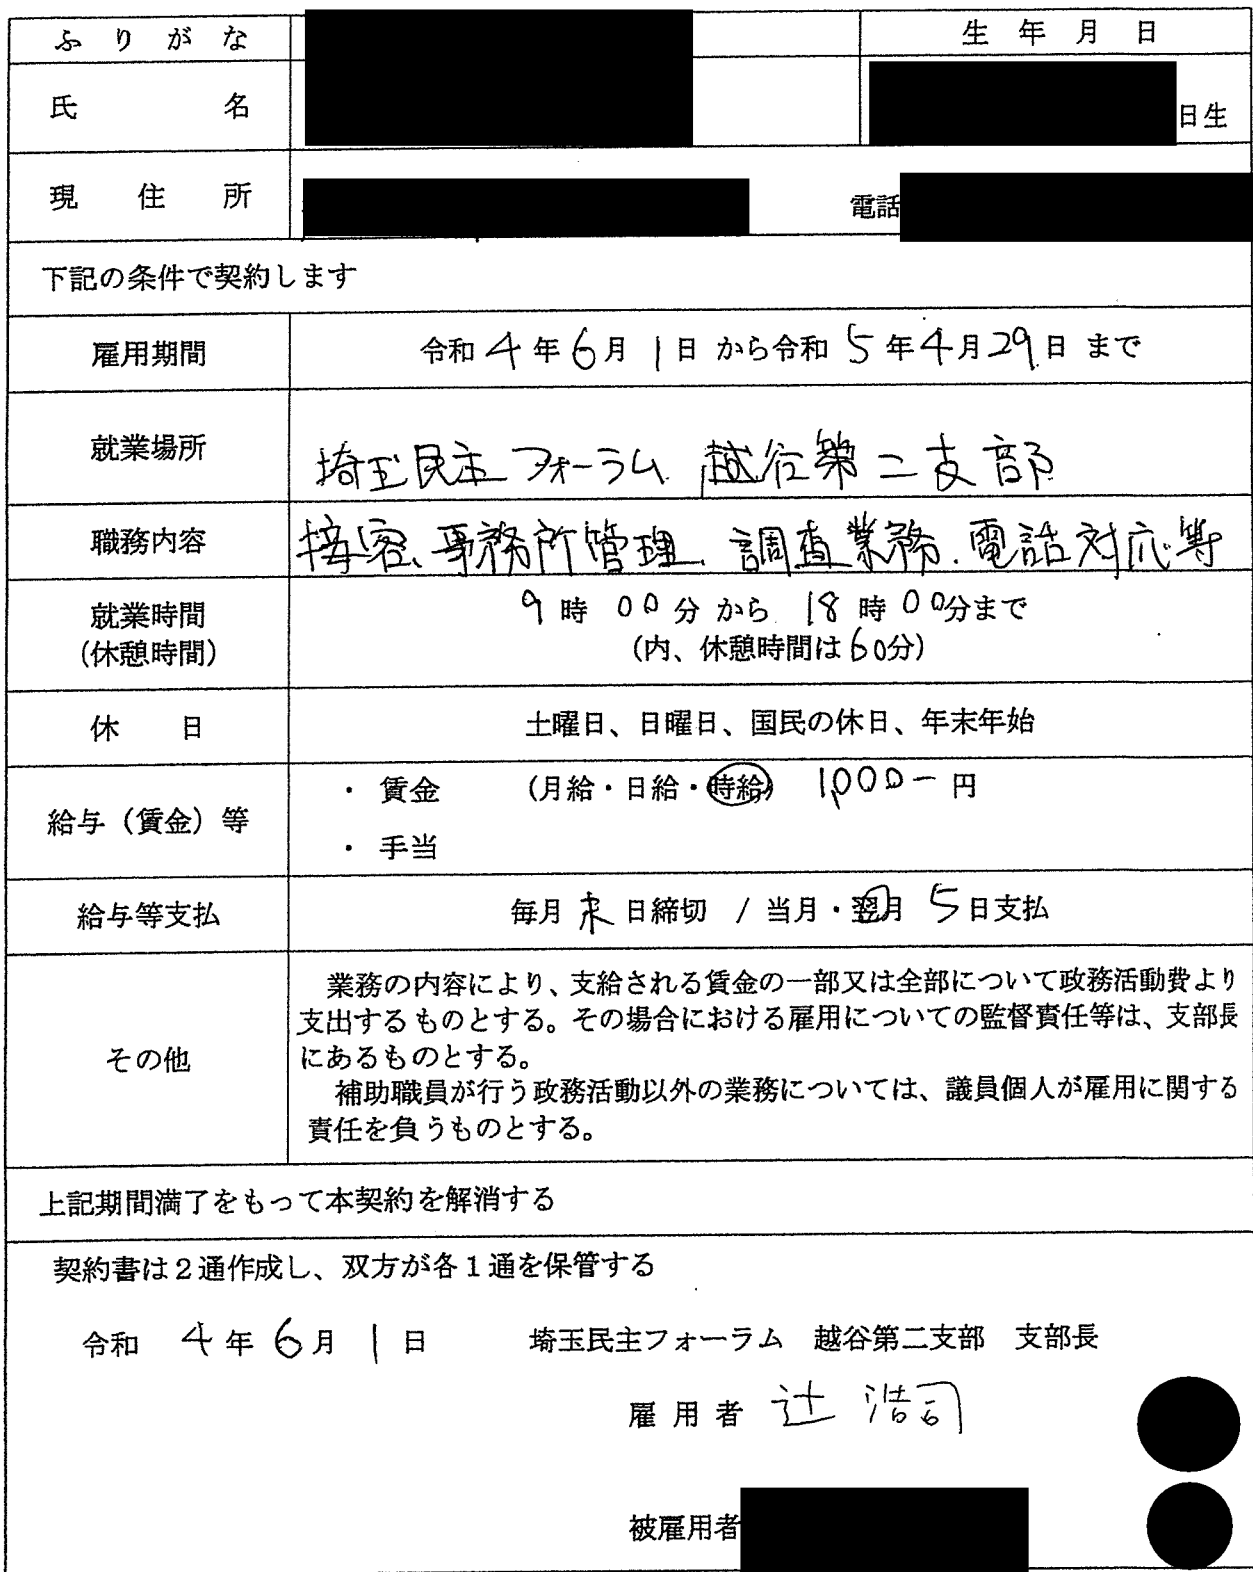 ふりがな
生年月日
氏名
日生
現住所
電話
下記の条件で契約します
雇用期間
令和4年6月1日から令和5年4月29日まで
就業場所
埼玉民主フォーラム 越谷第二支部
職務内容
接客、事務所管理、調査業務、電話対応等
就業時間
(休憩時間)
9時00分から18時00分まで
(内、休憩時間は60分)
休日
土曜日、日曜日、国民の休日、年末年始
給与(賃金)等
・ 賃金 (月給・日給・時給) 1,000-円
・ 手当
給与等支払
毎月末日締切 / 当月・翌月 5日支払
その他
業務の内容により、支給される賃金の一部又は全部について政務活動費より
支出するものとする。その場合における雇用についての監督責任等は、支部長
にあるものとする。
補助職員が行う政務活動以外の業務については、議員個人が雇用に関する
責任を負うものとする。
上記期間満了をもって本契約を解消する
契約書は2通作成し、双方が各1通を保管する
令和 4年6月1日 埼玉民主フォーラム 越谷第二支部 支部長
雇用者 辻 浩司
被雇用者